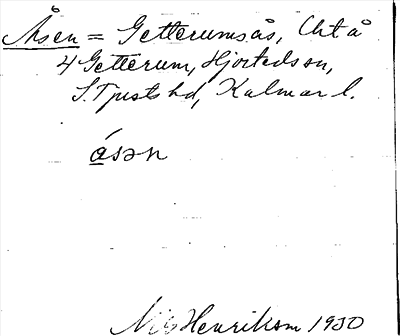 Åsen = Getterumsås, Cht å
4 Getterum, Hjorteds sn,
S. Tjusts hd, Kalmar l.
åsən
Nils Henriksson 1930